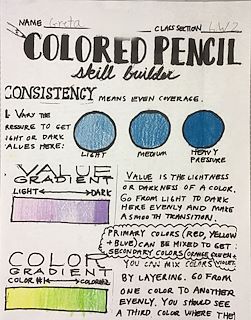 NAME Greta CLASS SECTION LW2
COLORED PENCIL
skill builder
CONSISTENCY MEANS EVEN COVERAGE.
1. VARY THE
PRESSURE TO GET
LIGHT OR DARK
VALUES HERE:
LIGHT MEDIUM HEAVY
PRESSURE
VALUE
GRADIENT
LIGHT DARK
VALUE IS THE LIGHTNESS
OR DARKNESS OF A COLOR.
GO FROM LIGHT TO DARK
HERE EVENLY AND MAKE
A SMOOTH TRANSITION.
PRIMARY COLORS (RED, YELLOW
+ BLUE) CAN BE MIXED TO GET:
SECONDARY COLORS (ORANGE GREEN +
VIOLET)
COLOR
GRADIENT
COLOR #1 COLOR #2
YOU CAN MIX COLORS
BY LAYERING. GO FROM
ONE COLOR TO ANOTHER
EVENLY. YOU SHOULD SEE
A THIRD COLOR WHERE THE